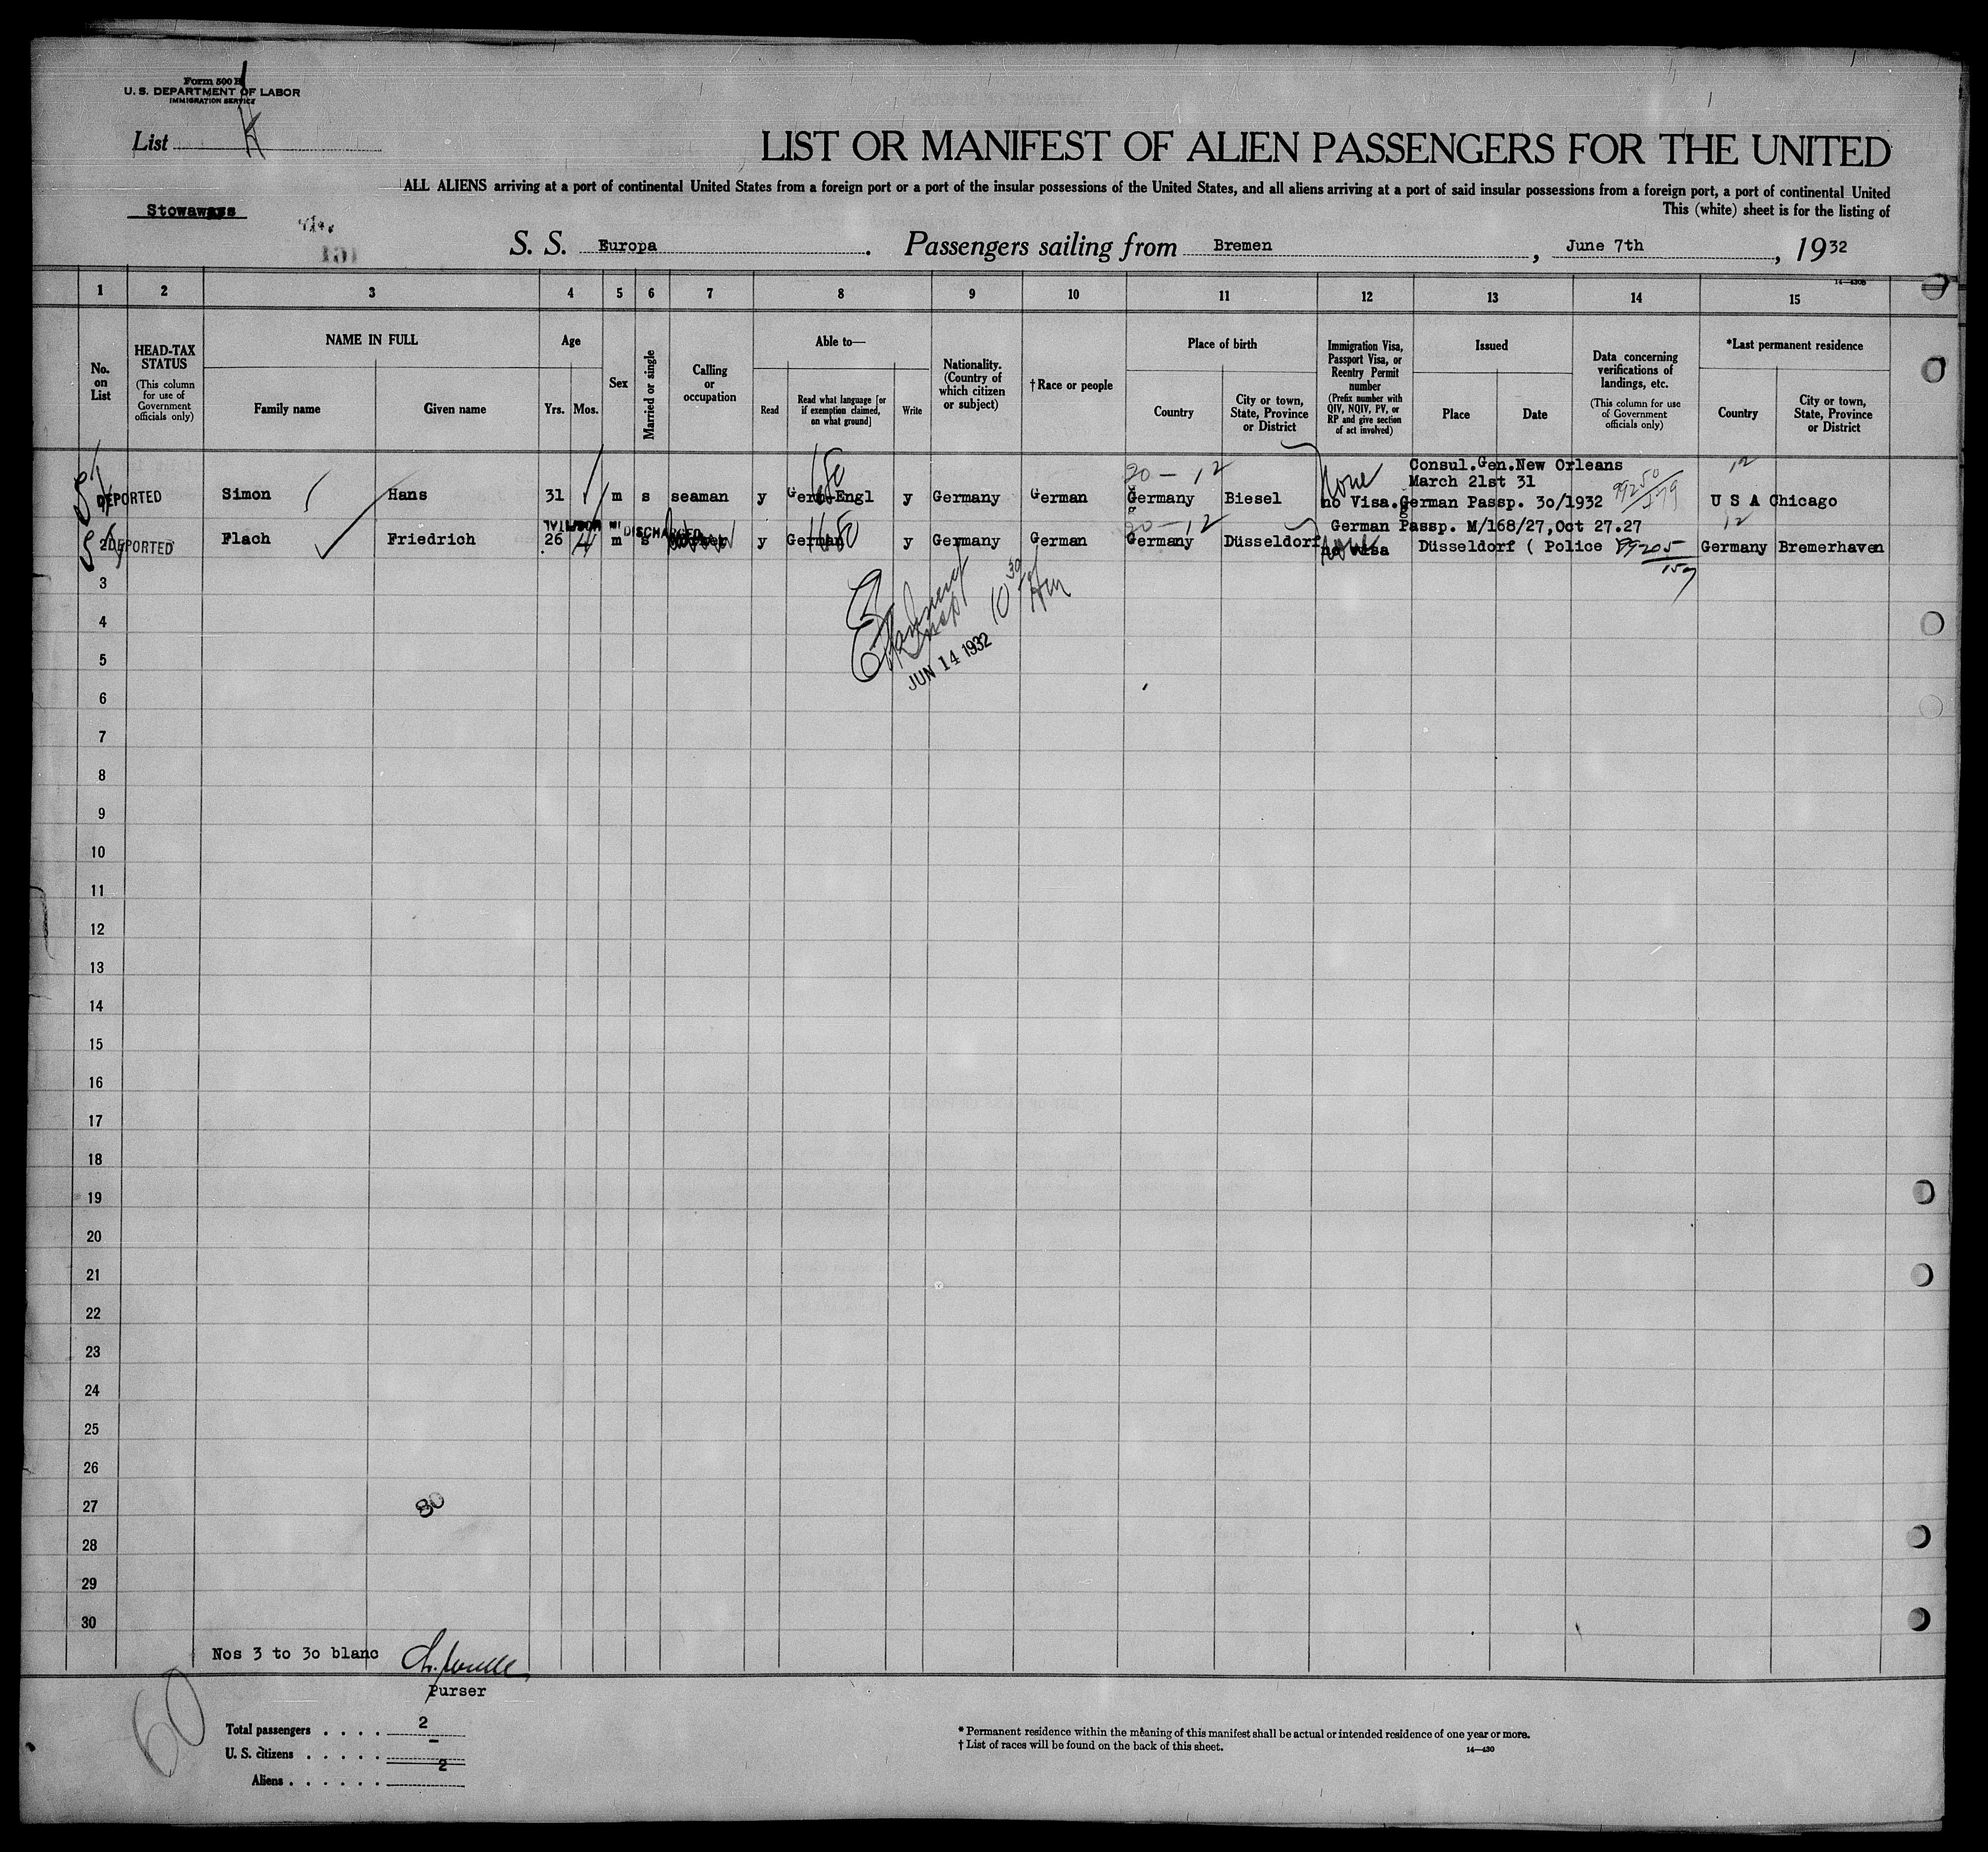 Form 500 B
U. S. DEPARTMENT OF LABOR
IMMIGRATION SERVICE
List
LIST OR MANIFEST OF ALIEN PASSENGERS FOR THE UNITED
ALL ALIENS arriving at a port of continental United States from a foreign port or a port of the insular possessions of the United States, and all aliens arriving at a port of said insular possessions from a foreign port, a port of continental United
This (white) sheet is for the listing of
Stowaways
151
S. S. Europa. Passengers sailing from Bremen, June 7th, 1932
14—430B
1 2 3 4 5 6 7 8 9 10 11 12 13 14 15
No. on List
HEAD-TAX STATUS
(This column for use of Government officials only)
NAME IN FULL
Family name Given name
Age
Yrs. Mos.
Sex
Married or single
Calling or occupation
Able to—
Read Read what language [or if exemption claimed, on what ground] Write
Nationality. (Country of which citizen or subject)
†Race or people
Place of birth
Country City or town, State, Province or District
Immigration Visa, Passport Visa, or Reentry Permit number
(Prefix number with QIV, NQIV, PV, or RP and give section of act involved)
Issued
Place Date
Data concerning verifications of landings, etc.
(This column for use of Government officials only)
*Last permanent residence
Country City or town, State, Province or District
20 — 12 None Consul.Gen.New Orleans 12
March 21st 31
DEPORTED Simon Hans 31 m s seaman y Germ-Engl y Germany German Germany Biesel no Visa.German Passp. 3o/1932 99250/579 U S A Chicago
DISCHARGED 20 — 12 German Passp. M/168/27,Oct 27.27 12
2 DEPORTED Flach Friedrich 26 4 m s y German y Germany German Germany Düsseldorf no visa Düsseldorf ( Police 99205/157 Germany Bremerhaven
3
4
5
6
7
8
9
10
11
12
13
14
15
16
17
18
19
20
21
22
23
24
25
26
27
28
29
30
Insp
10 30 AM
JUN 14 1932
80
Nos 3 to 3o blanc
Purser
60
Total passengers . . . . 2
U. S. citizens . . . . . –
Aliens . . . . . . 2
* Permanent residence within the meaning of this manifest shall be actual or intended residence of one year or more.
† List of races will be found on the back of this sheet.
14—430